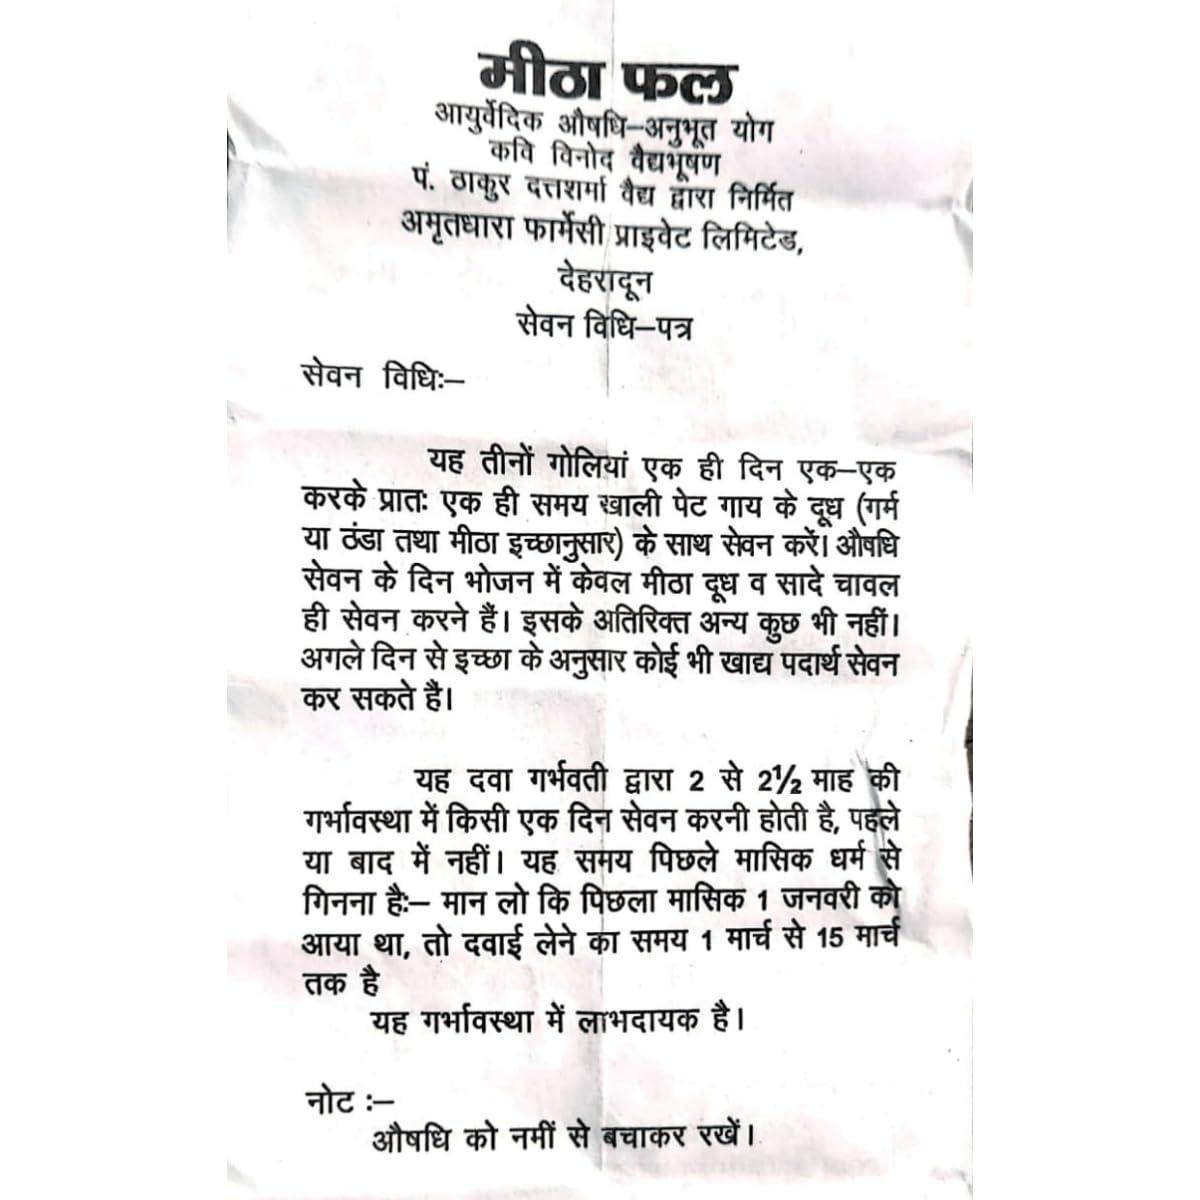 मीठा फल
आयुर्वेदिक औषधि–अनुभूत योग
कवि विनोद वैद्यभूषण
पं. ठाकुर दत्तशर्मा वैद्य द्वारा निर्मित
अमृतधारा फार्मेसी प्राइवेट लिमिटेड,
देहरादून
सेवन विधि–पत्र
सेवन विधिः–
यह तीनों गोलियां एक ही दिन एक–एक
करके प्रातः एक ही समय खाली पेट गाय के दूध (गर्म
या ठंडा तथा मीठा इच्छानुसार) के साथ सेवन करें। औषधि
सेवन के दिन भोजन में केवल मीठा दूध व सादे चावल
ही सेवन करने हैं। इसके अतिरिक्त अन्य कुछ भी नहीं।
अगले दिन से इच्छा के अनुसार कोई भी खाद्य पदार्थ सेवन
कर सकते हैं।
यह दवा गर्भवती द्वारा 2 से 2½ माह की
गर्भावस्था में किसी एक दिन सेवन करनी होती है, पहले
या बाद में नहीं। यह समय पिछले मासिक धर्म से
गिनना हैः– मान लो कि पिछला मासिक 1 जनवरी को
आया था, तो दवाई लेने का समय 1 मार्च से 15 मार्च
तक है
यह गर्भावस्था में लाभदायक है।
नोट :–
औषधि को नमीं से बचाकर रखें।